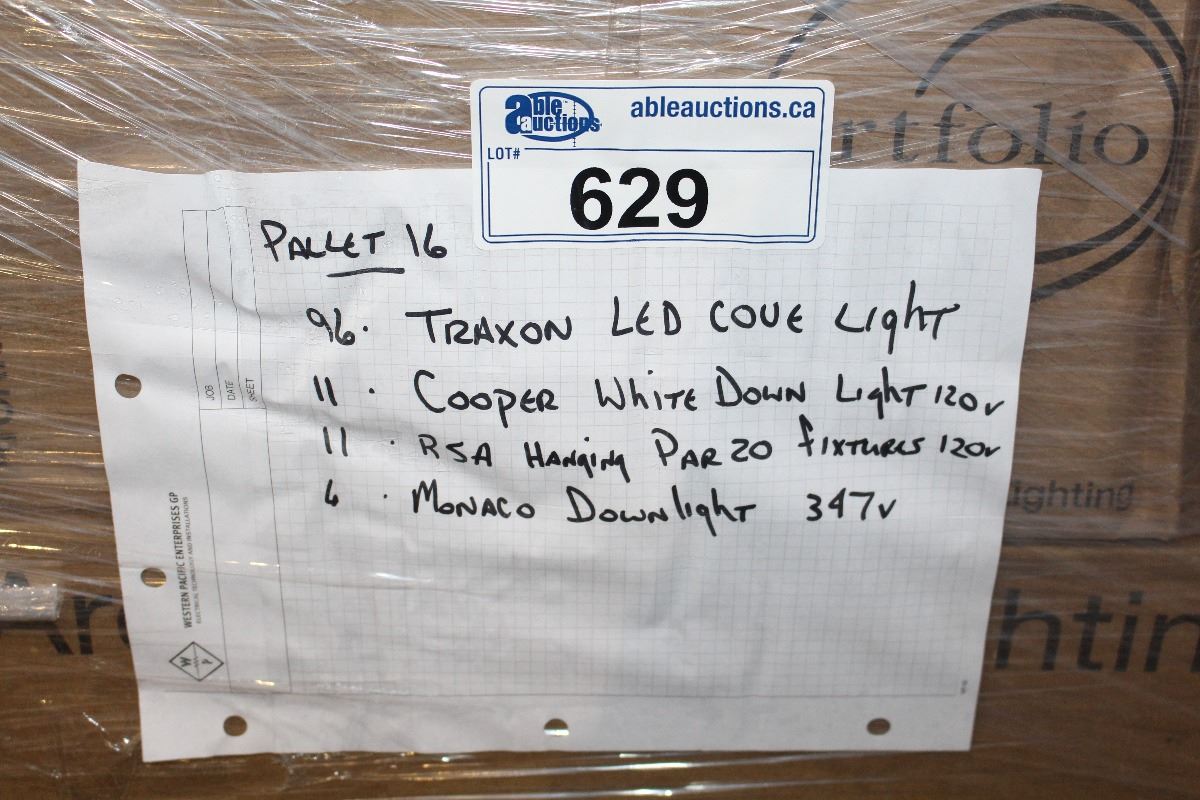 able auctions
ableauctions.ca
LOT#
629
rtfolio
PALLET 16
96. TRAXON LED COVE LIGHT
11 . COOPER WHITE DOWN LIGHT 120v
11 . RSA HANGING PAR 20 FIXTURES 120v
6 . MONACO DOWNLIGHT 347v
JOB
DATE
SHEET
WESTERN PACIFIC ENTERPRISES GP
ELECTRICAL TECHNOLOGY AND INSTALLATIONS
W P
ighting
Ar
htin